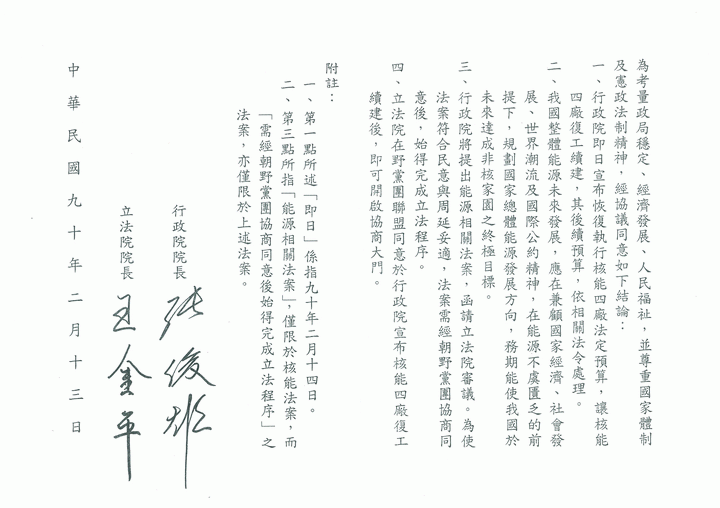 為考量政局穩定、經濟發展、人民福祉，並尊重國家體制
及憲政法制精神，經協議同意如下結論：
一、行政院即日宣布恢復執行核能四廠法定預算，讓核能
四廠復工續建，其後續預算，依相關法令處理。
二、我國整體能源未來發展，應在兼顧國家經濟、社會發
展、世界潮流及國際公約精神，在能源不虞匱乏的前
提下，規劃國家總體能源發展方向，務期能使我國於
未來達成非核家園之終極目標。
三、行政院將提出能源相關法案，函請立法院審議。為使
法案符合民意與周延妥適，法案需經朝野黨團協商同
意後，始得完成立法程序。
四、立法院在野黨團聯盟同意於行政院宣布核能四廠復工
續建後，即可開啟協商大門。
附註：
一、第一點所述「即日」係指九十年二月十四日。
二、第三點所指「能源相關法案」，僅限於核能法案，而
「需經朝野黨團協商同意後始得完成立法程序」之
法案，亦僅限於上述法案。
行政院院長 張俊雄
立法院院長 王金平
中華民國九十年二月十三日